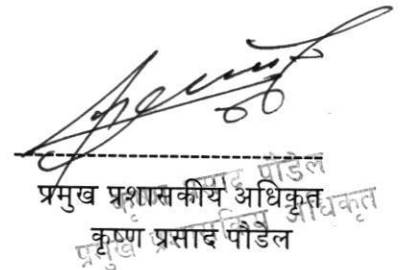 प्रमुख प्रशासकीय अधिकृत
कृष्ण प्रसाद पौडेल
प्रसाद पौडेल
प्रमुख अधिकृत